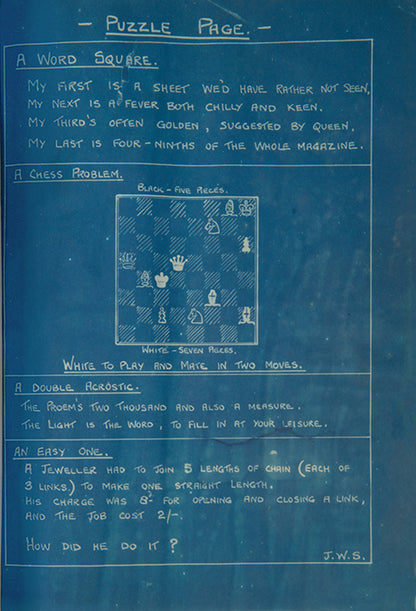 - PUZZLE PAGE. -
A WORD SQUARE.
MY FIRST IS A SHEET WE'D HAVE RATHER NOT SEEN,
MY NEXT IS A FEVER BOTH CHILLY AND KEEN.
MY THIRD'S OFTEN GOLDEN, SUGGESTED BY QUEEN,
MY LAST IS FOUR-NINTHS OF THE WHOLE MAGAZINE.
A CHESS PROBLEM.
BLACK - FIVE PIECES.
WHITE - SEVEN PIECES.
WHITE TO PLAY AND MATE IN TWO MOVES.
A DOUBLE ACROSTIC.
THE PROEM'S TWO THOUSAND AND ALSO A MEASURE.
THE LIGHT IS THE WORD, TO FILL IN AT YOUR LEISURE.
AN EASY ONE.
A JEWELLER HAD TO JOIN 5 LENGTHS OF CHAIN (EACH OF
3 LINKS.) TO MAKE ONE STRAIGHT LENGTH.
HIS CHARGE WAS FOR OPENING AND CLOSING A LINK,
AND THE JOB COST 2/-.
HOW DID HE DO IT?
J.W.S.